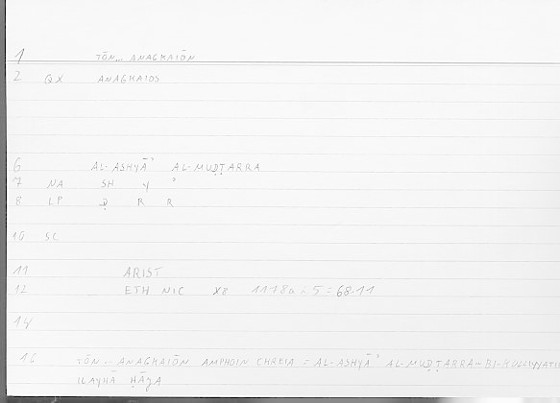 1 TŌN... ANAGKAIŌN
2 QX ANAGKAIOS
6 AL-ASHYĀʾ AL-MUḌṬARRA
7 NA SH Y ʾ
8 LP Ḍ R R
10 SL
11 ARIST
12 ETH NIC X8 1118a :5 = 68.11
14
16 TŌN.. ANAGKAIŌN AMPHOIN CHREIA = AL-ASHYĀʾ AL-MUḌṬARRA-BI-KULLIYYATI
ILAYHĀ ḤĀǦA